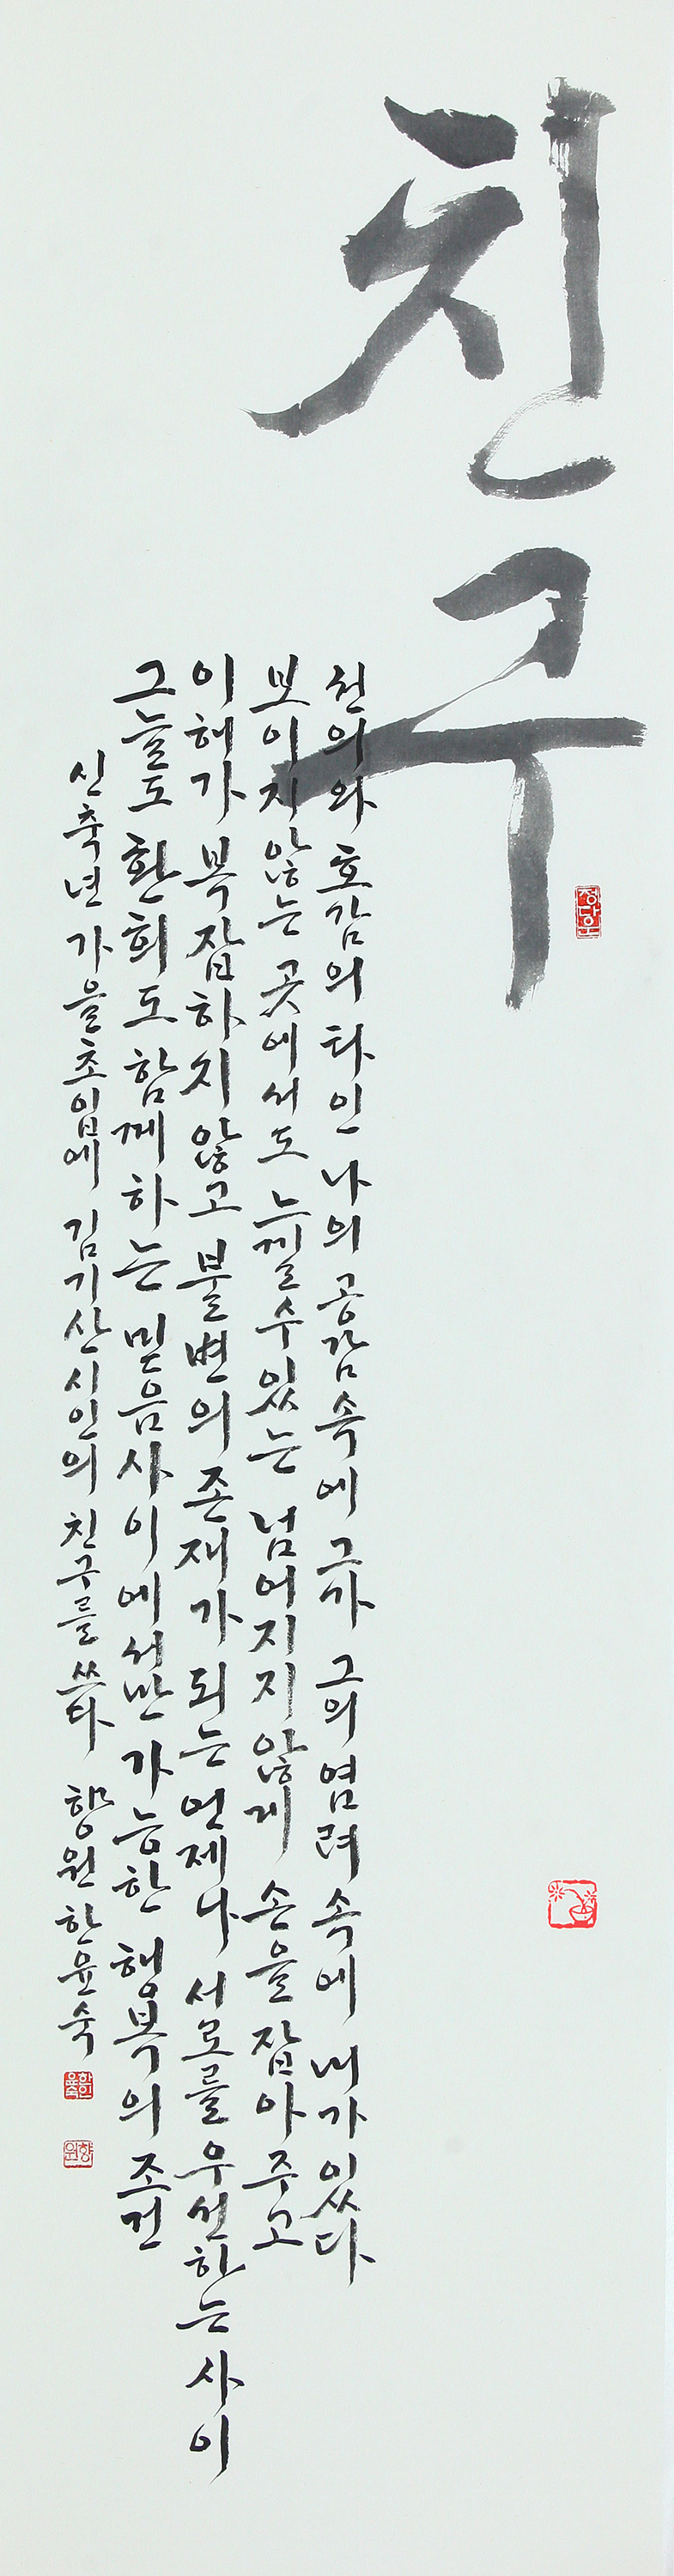 친구
선의와 호감의 타인 나의 공감 속에 그가 그의 염려 속에 내가 있다
보이지 않는 곳에서도 느낄 수 있는 넘어지지 않게 손을 잡아 주고
이해가 복잡하지 않고 불변의 존재가 되는 언제나 서로를 우선하는 사이
그늘도 환희도 함께 하는 믿음 사이에서만 가능한 행복의 조건
신축년 가을 초입에 김기산 시인의 친구를 쓰다 향원 한윤숙